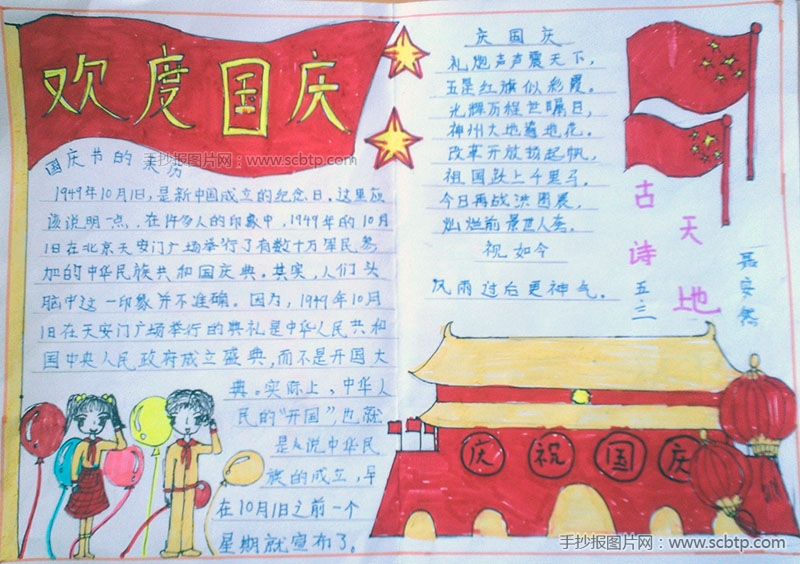 欢度国庆
手抄报图片网:www.scbtp.com
国庆节的来历
1949年10月1日,是新中国成立的纪念日。这里应
该说明一点,在许多人的印象中,1949年的10月
1日在北京天安门广场举行了有数十万军民参
加的中华民族共和国庆典。其实,人们头
脑中这一印象并不准确。因为,1949年10月
1日在天安门广场举行的典礼是中华人民共和
国中央人民政府成立盛典,而不是开国大
典。实际上,中华人
民的"开国",也就
是说中华民
族的成立,早
在10月1日之前一个
星期就宣布了。
庆国庆
礼炮声声震天下,
五星红旗似彩霞。
光辉历程世瞩目,
神州大地遍地花。
改革开放扬起帆,
祖国跃上千里马。
今日再战洪图展,
灿烂前景世人夸。
祝如今
风雨过后更神气。
古诗
天地
五三
安然
庆祝国庆
手抄报图片网:www.scbtp.com